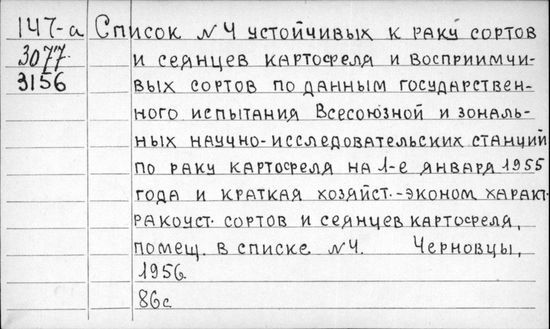 147-а Список №4 устойчивых к раку сортов
3077 и сеянцев картофеля и восприимчи-
3156 вых сортов по данным государствен-
ного испытания Всесоюзной и зональ-
ных научно-исследовательских станций
по раку картофеля на 1-е января 1955
года и краткая хозяйст.-эконом характ.
ракоуст. сортов и сеянцев картофеля,
помещ. в списке №4. Черновцы,
1956.
86с